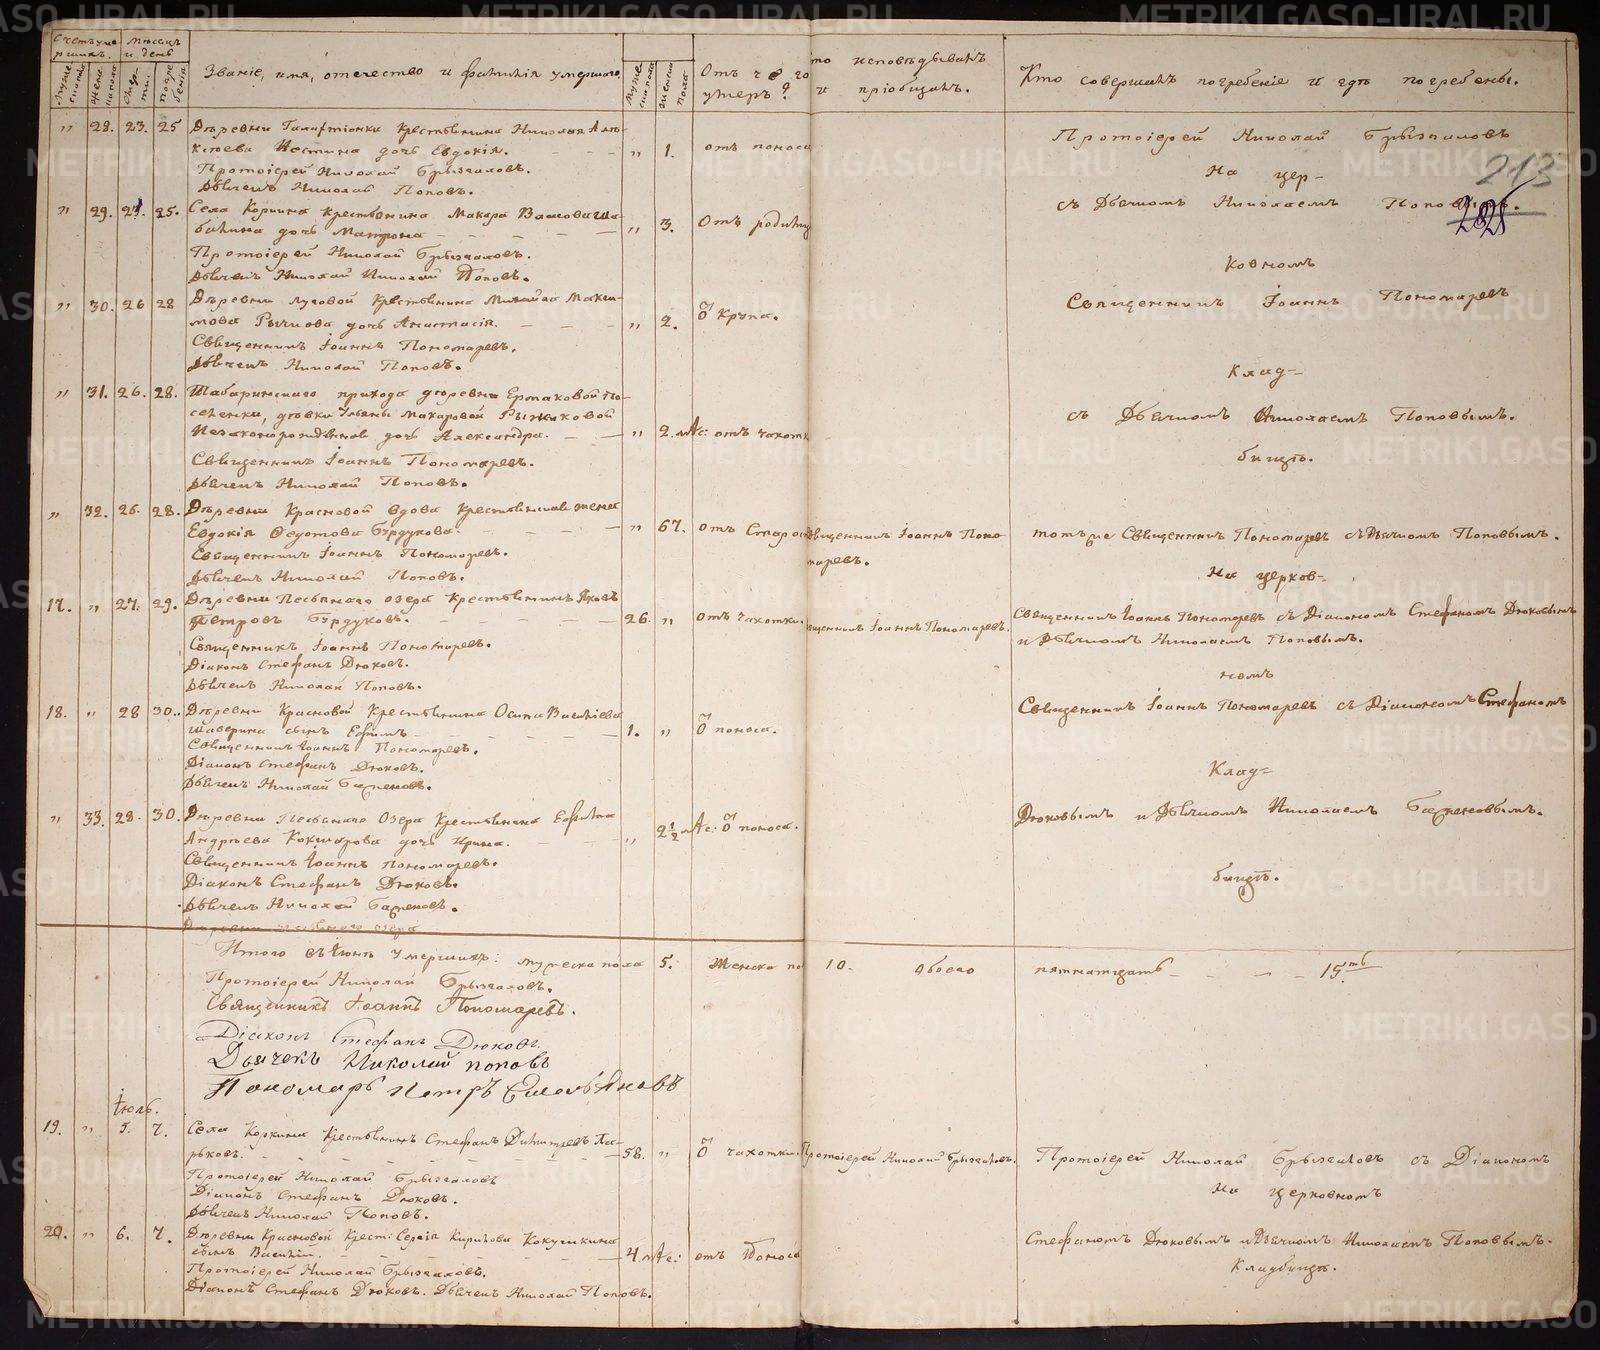 METRIKI.GASO-URAL.RU
Счетъ умершихъ.
Мѣсяцъ и день
Мужеска
Женска пола
Званіе, имя, отечество и фамилія умершаго.
Мужеска пола
Женска пола
Отъ чего умеръ?
то исповѣдывалъ и пріобщалъ.
Кто совершалъ погребеніе и гдѣ погребены.
213
„ 28. 23. 25 Деревни крестьянина Николая Але-
ксѣева дочь Евдокія. „ 1. отъ поноса
Протоіерей Николай Брызгаловъ.
Дьячекъ Николай Поповъ.
Протоіерей Николай Брызгаловъ
На цер-
съ Дьячкомъ Николаемъ Поповымъ.
„ 29. 25. Села Коркина крестьянина Макара
дочь Матрона „ 3. Отъ родимц
Протоіерей Николай Брызгаловъ.
Дьячекъ Николай Николай Поповъ.
ковномъ
„ 30. 26 28 Деревни Луговой крестьянина Михаила Макси-
мова Рычкова дочь Анастасія. „ 2. Ѿ Крупа.
Священникъ Іоаннъ Пономаревъ.
Дьячекъ Николай Поповъ.
Священникъ Іоаннъ Пономаревъ
Клад-
„ 31. 26. 28. Шабаринскаго прихода деревни Ермаковой По-
селенки, дѣвки Ульяны Макаровой Рыжиковой
Незаконорожденная дочь Александра. „ 2. мѣс: отъ чахотк
Священникъ Іоаннъ Пономаревъ.
Дьячекъ Николай Поповъ.
съ Дьячкомъ Николаемъ Поповымъ.
бищѣ.
„ 32. 26. 28. Деревни Красновой вдова крестьянская жена
Евдокія Федотова Бурдукова. „ 67. отъ Старос
Священникъ Іоаннъ Пономаревъ.
Дьячекъ Николай Поповъ.
вященникъ Іоаннъ Поно-
маревъ.
тотъ же Священникъ Пономаревъ съ Дьячкомъ Поповымъ.
На церков-
17. „ 27. 29. Деревни Песьянаго озера крестьянинъ Яковъ
Петровъ Бурдуковъ. 26. „ отъ чахотки.
Священникъ Іоаннъ Пономаревъ.
Діаконъ Стефанъ Дюковъ.
Дьячекъ Николай Поповъ.
вященникъ Іоаннъ Пономаревъ.
Священникъ Іоаннъ Пономаревъ съ Діакономъ Стефаномъ Дюковымъ
и Дьячкомъ Николаемъ Поповымъ.
номъ
18. „ 28 30. Деревни Красновой Крестьянина Осипа Васильева
Шаверина сынъ Ефимъ 1. „ Ѿ поноса.
Священникъ Іоаннъ Пономаревъ.
Діаконъ Стефанъ Дюковъ.
Дьячекъ Николай Баженовъ.
Священникъ Іоаннъ Пономаревъ съ Діакономъ Стефаномъ
Клад-
„ 33. 28. 30. Деревни Песьянаго Озера Крестьянина Ефима
Андреева Кокшарова дочь Ирина. „ 2½ мѣс: Ѿ поноса.
Священникъ Іоаннъ Пономаревъ.
Діаконъ Стефанъ Дюковъ.
Дьячекъ Николай Баженовъ.
Дюковымъ и Дьячкомъ Николаемъ Баженовымъ.
бищѣ.
Итого въ Іюнѣ умершихъ: мужеска пола 5. Женска по 10. Обоего пятнатцать 15ть
Протоіерей Николай Брызгаловъ.
Священникъ Іоаннъ Пономаревъ.
Діаконъ Стефанъ Дюковъ.
Дьячекъ Николай Поповъ
Пономарь Петръ
Іюль.
19. „ 5. 7. Села Коркина Крестьянинъ Стефанъ Димитріевъ Ла-
рьковъ. 58. „ Ѿ чахотки.
Протоіерей Николай Брызгаловъ
Діаконъ Стефанъ Дюковъ.
Дьячекъ Николай Поповъ.
Протоіерей Николай Брызгаловъ.
Протоіерей Николай Брызгаловъ съ Діакономъ
На церковномъ
20. „ 6. 7. Деревни Красновой Крест: Сергія Кирилова Кокушкина
сынъ Василій. 4 мѣс: отъ Поноса
Протоіерей Николай Брызгаловъ.
Діаконъ Стефанъ Дюковъ. Дьячекъ Николай Поповъ.
Стефаномъ Дюковымъ и Дьячкомъ Николаемъ Поповымъ.
Кладбищѣ.